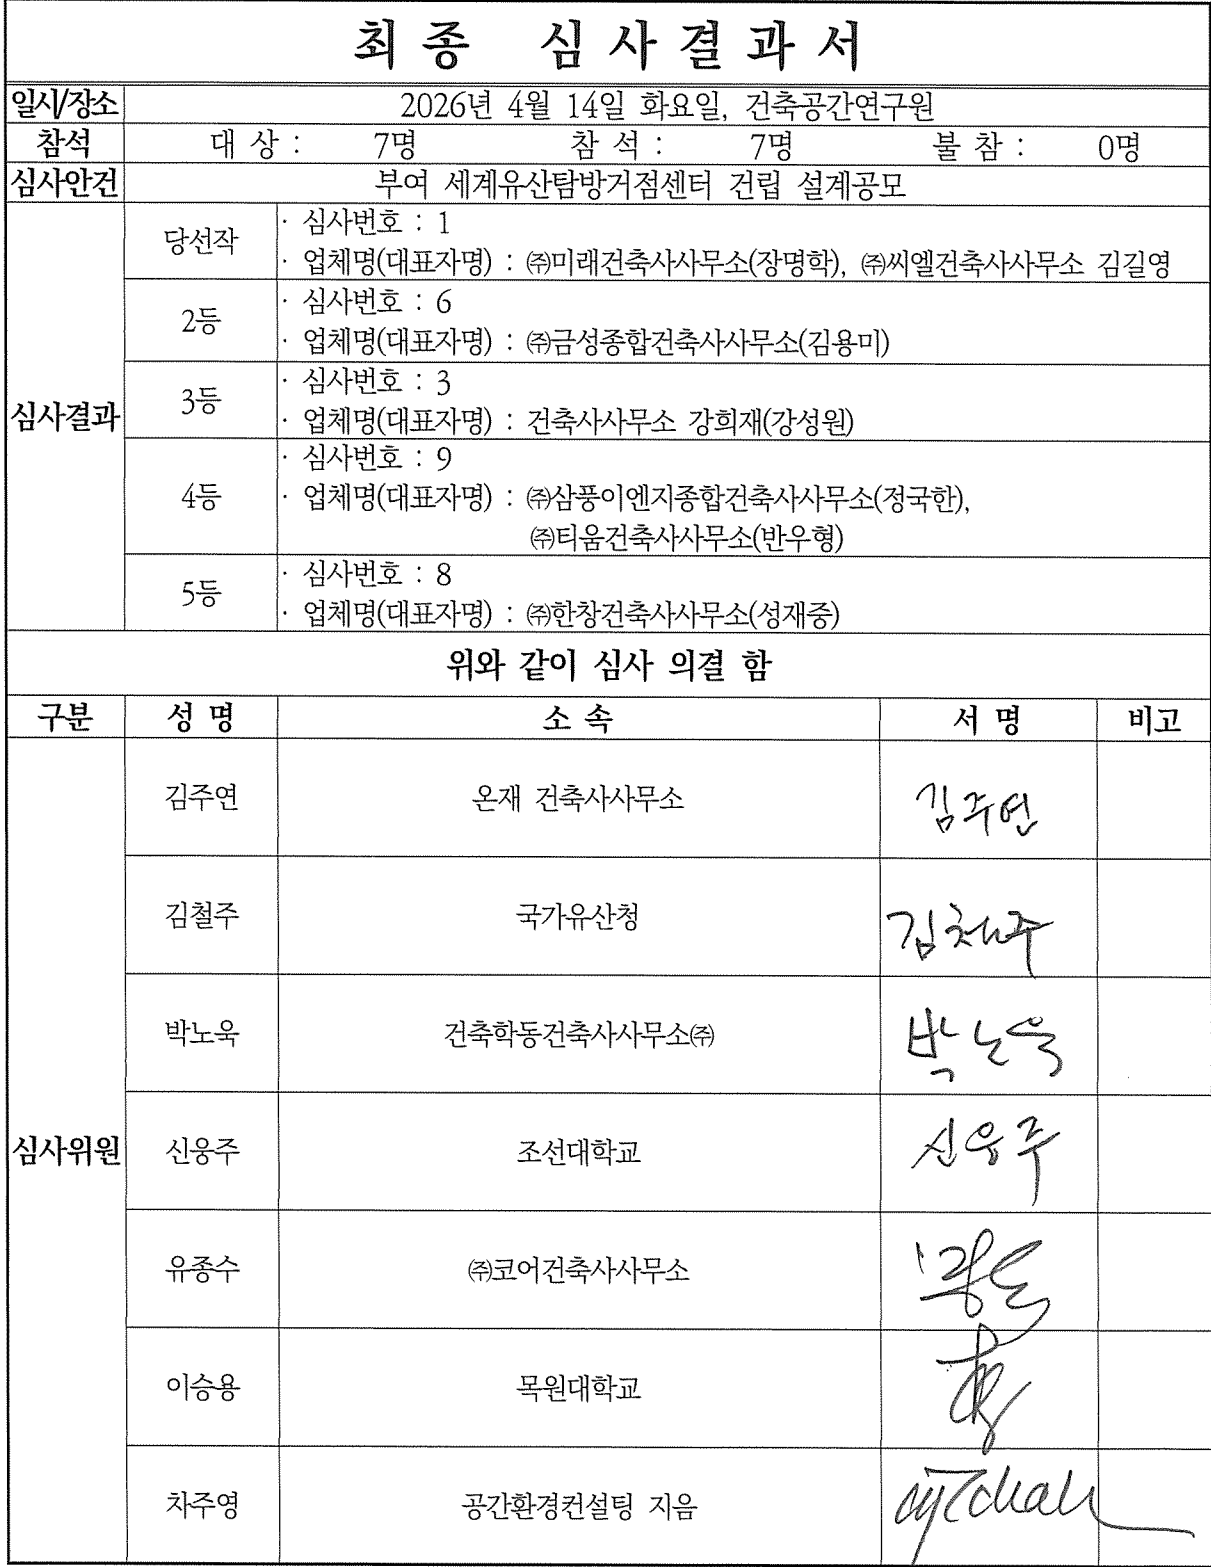 최종 심사결과서
일시/장소 2026년 4월 14일 화요일, 건축공간연구원
참석 대 상 : 7명 참 석 : 7명 불 참 : 0명
심사안건 부여 세계유산탐방거점센터 건립 설계공모
심사결과
당선작
· 심사번호 : 1
· 업체명(대표자명) : ㈜미래건축사사무소(장명학), ㈜씨엘건축사사무소 김길영
2등
· 심사번호 : 6
· 업체명(대표자명) : ㈜금성종합건축사사무소(김용미)
3등
· 심사번호 : 3
· 업체명(대표자명) : 건축사사무소 강희재(강성원)
4등
· 심사번호 : 9
· 업체명(대표자명) : ㈜삼풍이엔지종합건축사사무소(정국한),
㈜티움건축사사무소(반우형)
5등
· 심사번호 : 8
· 업체명(대표자명) : ㈜한창건축사사무소(성재중)
위와 같이 심사 의결 함
구분 성 명 소 속 서 명 비고
심사위원
김주연 온재 건축사사무소 김주연
김철주 국가유산청 김철주
박노욱 건축학동건축사사무소㈜ 박노욱
신웅주 조선대학교 신웅주
유종수 ㈜코어건축사사무소
이승용 목원대학교
차주영 공간환경컨설팅 지음